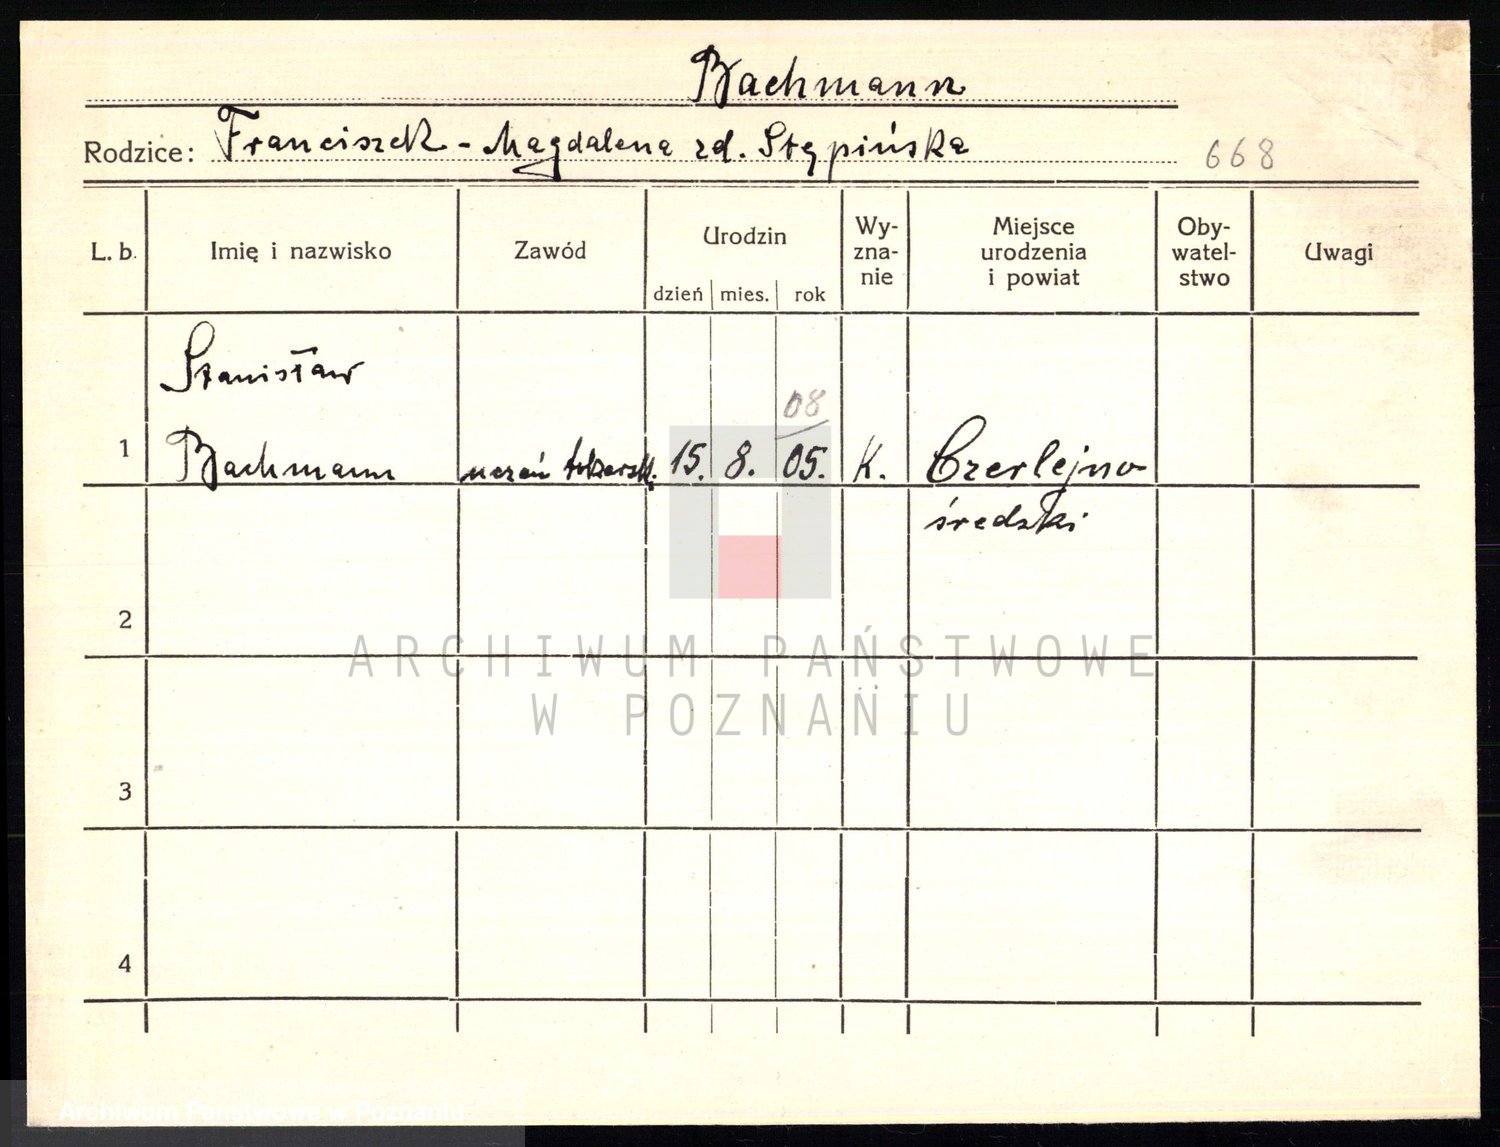 Bachmann
Rodzice: Franciszek - Magdalena zd. Stępińska 668
L. b. Imię i nazwisko Zawód Urodzin Wy-zna-nie Miejsce urodzenia i powiat Oby-watel-stwo Uwagi
dzień mies. rok
Stanisław
08
1 Bachmann uczeń tokarsk. 15. 8. 05. K. Czerlejno
średzki
2
ARCHIWUM PAŃSTWOWE
W POZNANIU
3
4
Archiwum Państwowe w Poznaniu